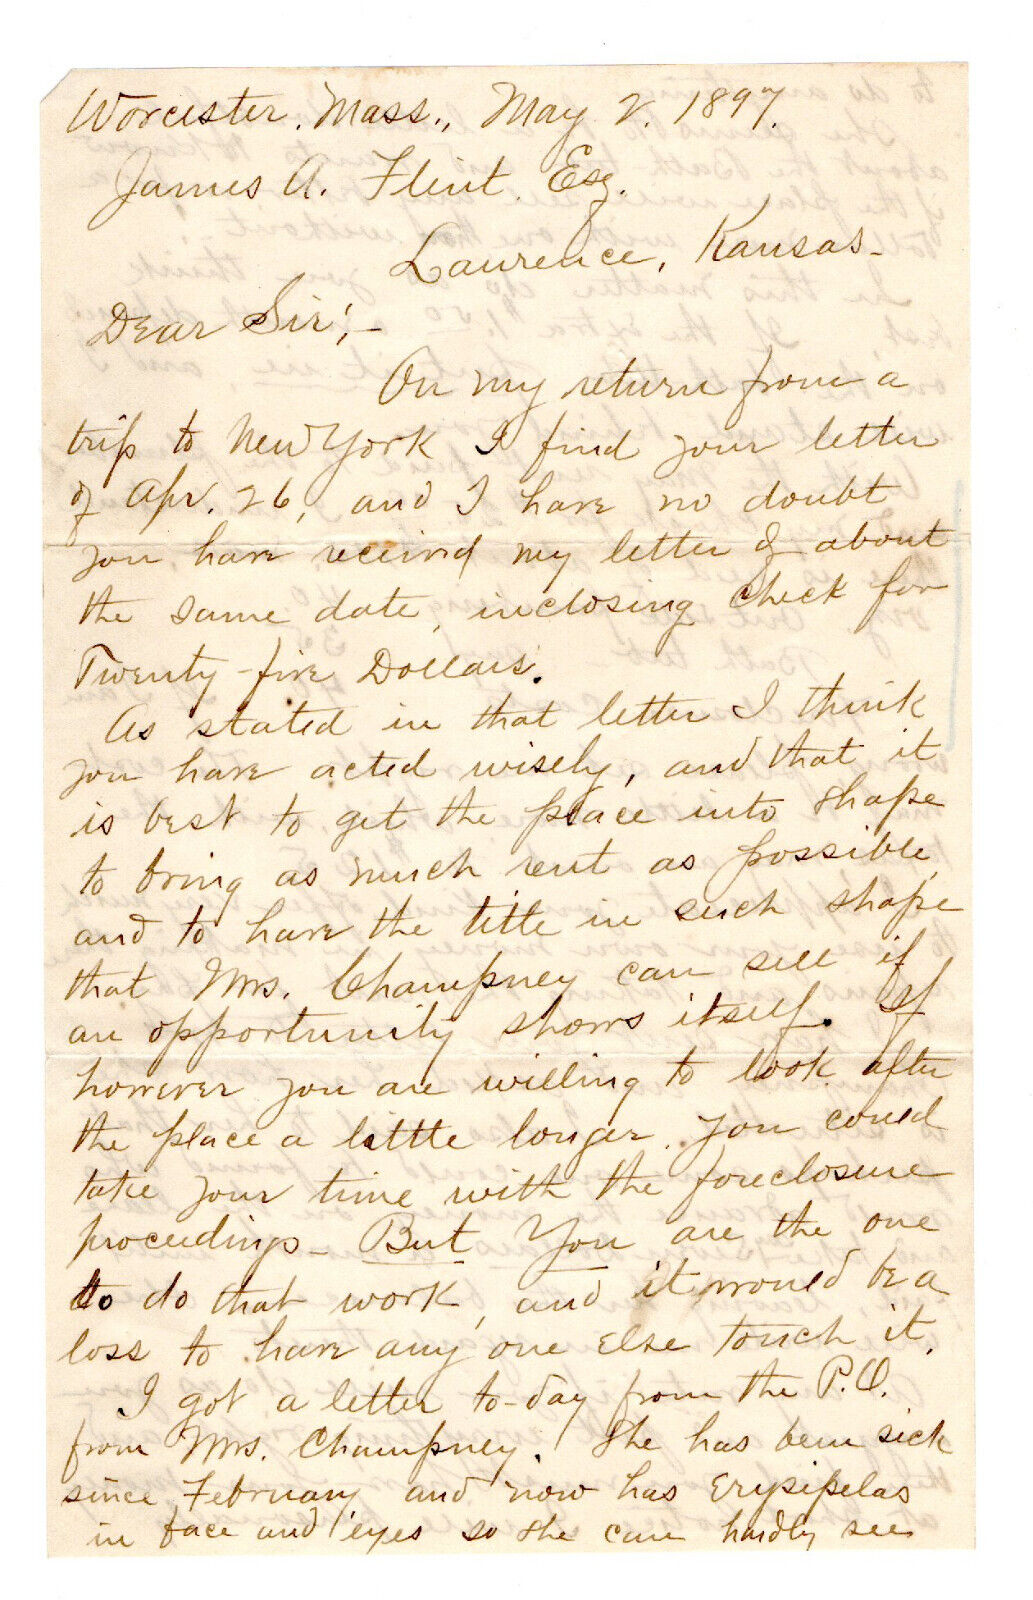 Worcester. Mass., May 2. 1897.
James A. Flint Esq.
Lawrence, Kansas-
Dear Sir;-
On my return from a
trip to New York I find your letter
of Apr. 26, and I have no doubt
you have received my letter of about
the same date, inclosing check for
Twenty-five Dollars.
As stated in that letter I think
you have acted wisely, and that it
is best to get the place into shape
to bring as much rent as possible,
and to have the title in such shape
that Mrs. Champney can sell if
an opportunity shows itself. If
however you are willing to look after
the place a little longer. you could
take your time with the foreclosure
proceedings- But You are the one
to do that work, and it would be a
loss to have any one else touch it.
I got a letter to-day from the P.O.
from Mrs. Champney. She has been sick
since February and now has Erysipelas
in face and eyes so she can hardly see